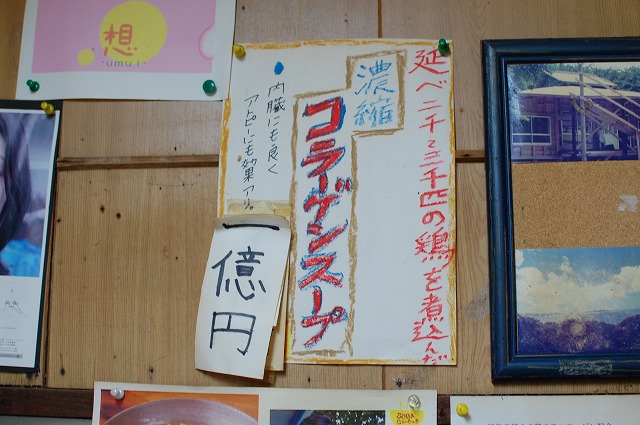 延べ二千~三千匹の鶏を煮込んだ
濃縮
コラーゲンスープ
内臓にも良く
アトピーにも効果アリ。
一億円
想
-umui-
SOBA